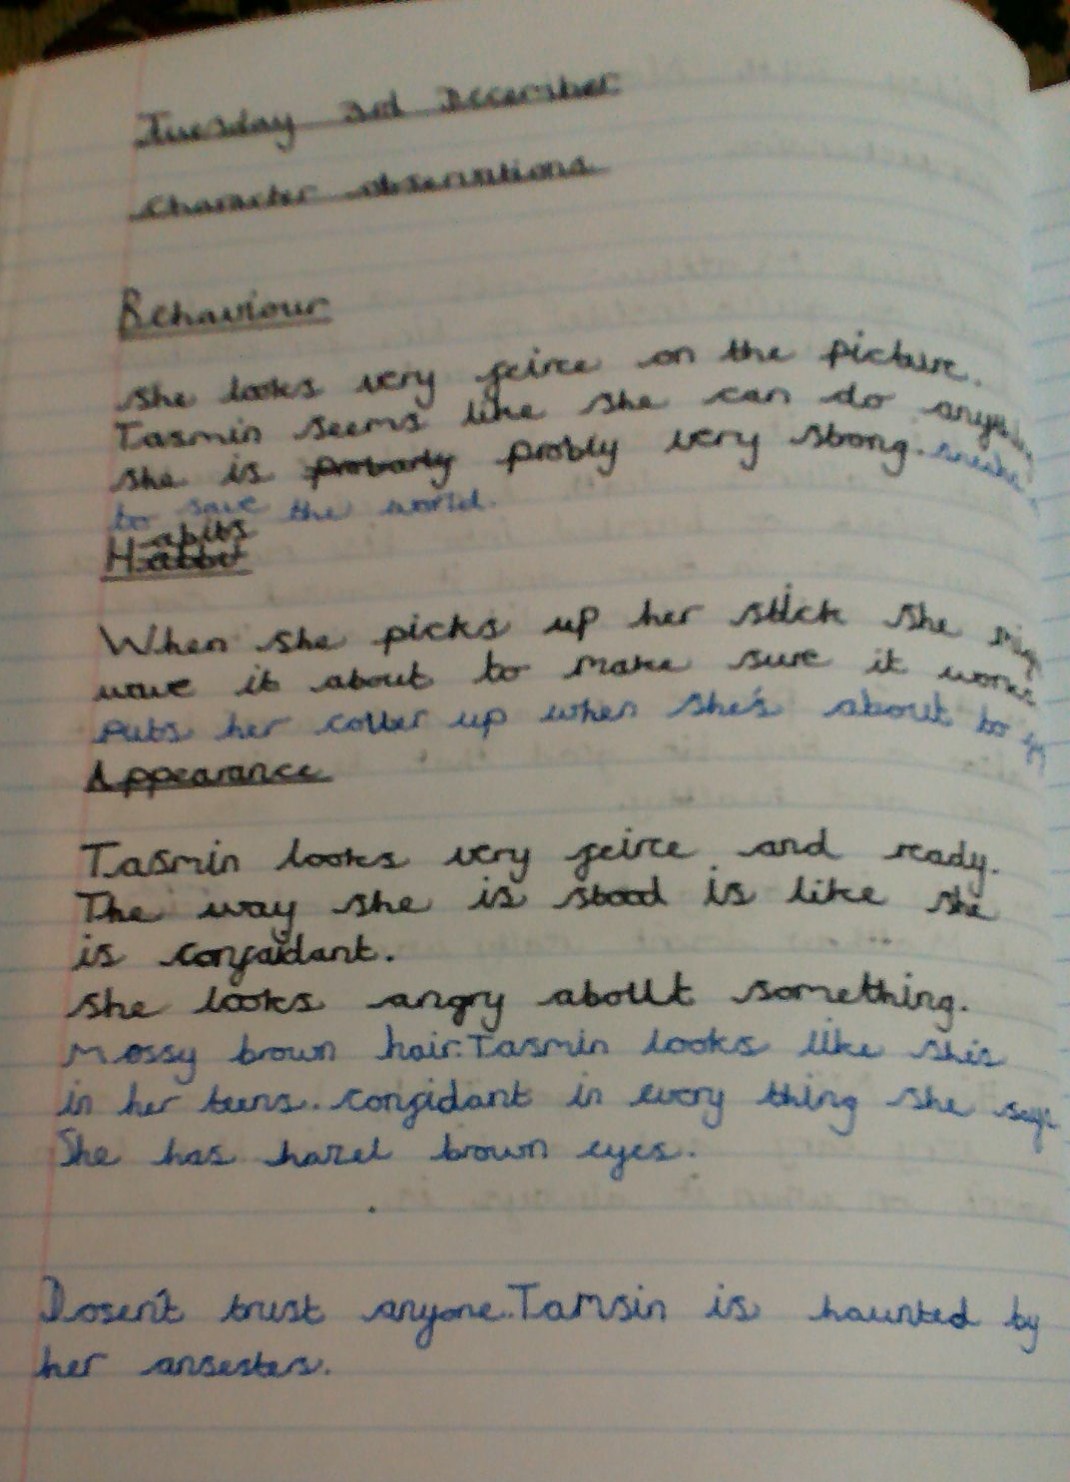 Tuesday 3rd December
Character observations
Behaviour
She looks very feirce on the picture.
Tasmin seems like she can do
she is probarly probly very strong.
to save the world.
Habits
When she picks up her stick she
wave it about to make sure it works
Puts her coller up when she's about to
Appearance
Tasmin looks very feirce and ready.
The way she is stood is like she
is confaidant.
She looks angry about something.
Messy brown hair. Tasmin looks like shes
in her teens. confidant in every thing she says
She has hazel brown eyes.
Dosen't trust anyone. Tamsin is haunted by
her ansesters.